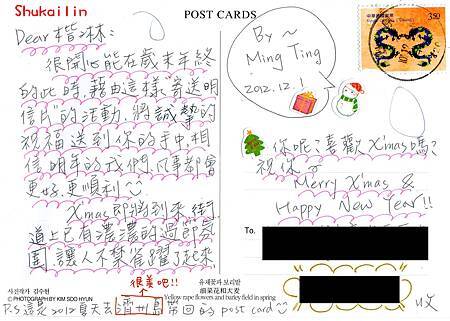 Shukailin
POST CARDS
Dear 楷琳:
很開心能在歲末年終
的此時,藉由這樣寄送明
信片"的活動,將誠摯的
祝福送到你的手中,相
信明年的我們,凡事都會
更好更順利
X'mas即將到來,街
道上已有濃濃的過節氛
圍,讓人不禁雀躍了起來
By ~
Ming Ting
2012.12.1
350
你呢?喜歡X'mas嗎?
祝你~
Merry X'mas &
Happy New Year!!
To.
很美吧!!
사진작가 김수현
© PHOTOGRAPH BY KIM SOO HYUN
유채꽃과 보리밭
油菜花和大麦
Yellow rape flowers and barley field in spring
P.S 這是2012夏天去濟州島帶回的 post card
收